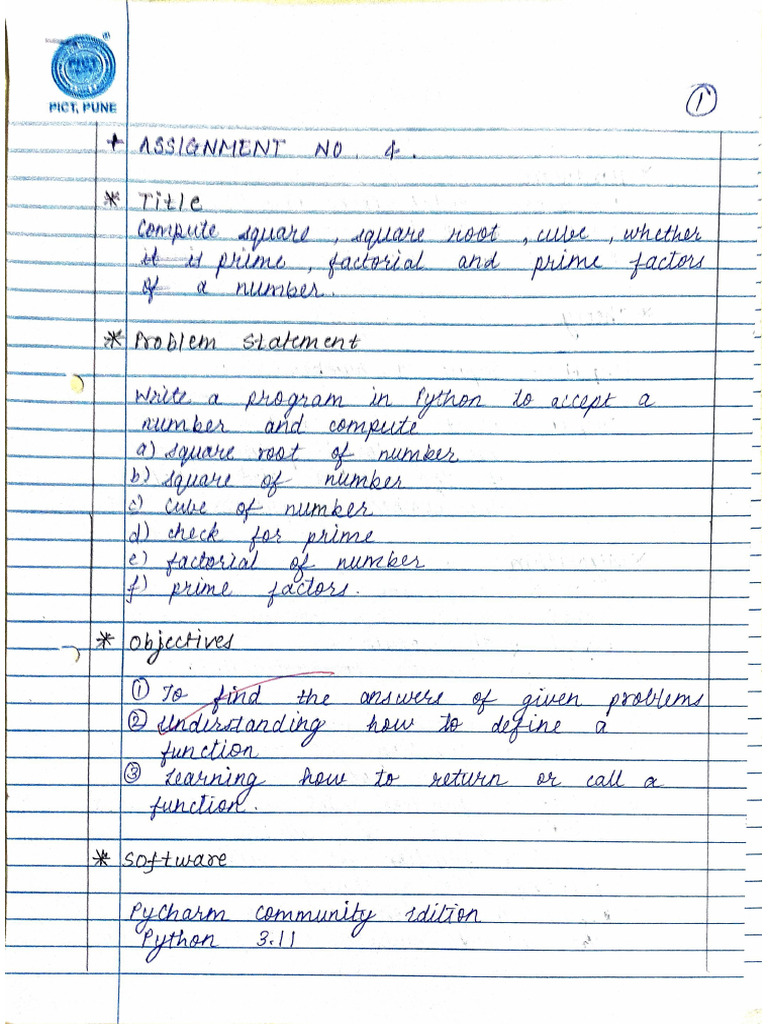 PICT
PICT, PUNE
1
+ ASSIGNMENT NO. 4.
* Title
Compute square, square root, cube, whether
it is prime, factorial and prime factors
of a number.
* Problem Statement
Write a program in Python to accept a
number and compute
a) square root of number
b) square of number
c) cube of number
d) check for prime
e) factorial of number
f) prime factors.
* Objectives
① To find the answers of given problems
② Understanding how to define a
function
③ Learning how to return or call a
function.
* Software
Pycharm community Edition
Python 3.11